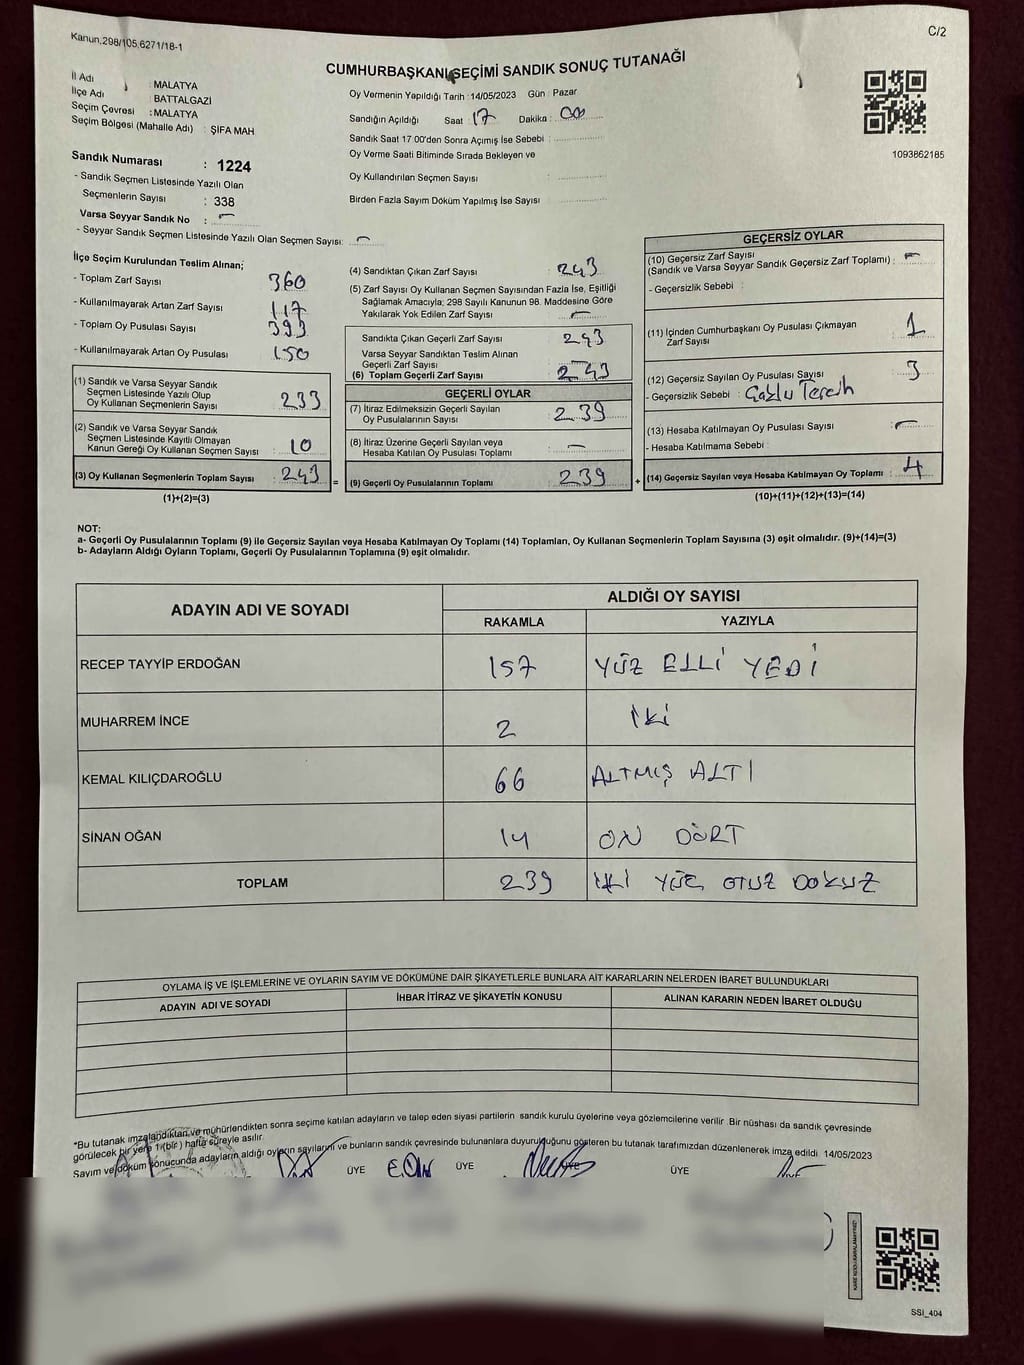 Kanun,298/105,6271/18-1
C/2
CUMHURBAŞKANI SEÇİMİ SANDIK SONUÇ TUTANAĞI
İl Adı : MALATYA
İlçe Adı : BATTALGAZİ
Seçim Çevresi : MALATYA
Seçim Bölgesi (Mahalle Adı) : ŞİFA MAH
Sandık Numarası : 1224
- Sandık Seçmen Listesinde Yazılı Olan
Seçmenlerin Sayısı : 338
Varsa Seyyar Sandık No : -
- Seyyar Sandık Seçmen Listesinde Yazılı Olan Seçmen Sayısı: -
Oy Vermenin Yapıldığı Tarih : 14/05/2023 Gün : Pazar
Sandığın Açıldığı Saat 17 Dakika : 00
Sandık Saat 17.00'den Sonra Açımış İse Sebebi :
Oy Verme Saati Bitiminde Sırada Bekleyen ve
Oy Kullandırılan Seçmen Sayısı :
Birden Fazla Sayım Döküm Yapılmış İse Sayısı :
1093862185
İlçe Seçim Kurulundan Teslim Alınan;
- Toplam Zarf Sayısı : 360
- Kullanılmayarak Artan Zarf Sayısı : 117
- Toplam Oy Pusulası Sayısı : 393
- Kullanılmayarak Artan Oy Pusulası : 150
(1) Sandık ve Varsa Seyyar Sandık
Seçmen Listesinde Yazılı Olup
Oy Kullanan Seçmenlerin Sayısı : 233
(2) Sandık ve Varsa Seyyar Sandık
Seçmen Listesinde Kayıtlı Olmayan
Kanun Gereği Oy Kullanan Seçmen Sayısı : 10
(3) Oy Kullanan Seçmenlerin Toplam Sayısı : 243
(1)+(2)=(3)
(4) Sandıktan Çıkan Zarf Sayısı : 243
(5) Zarf Sayısı Oy Kullanan Seçmen Sayısından Fazla İse, Eşitliği
Sağlamak Amacıyla; 298 Sayılı Kanunun 98. Maddesine Göre
Yakılarak Yok Edilen Zarf Sayısı : -
Sandıkta Çıkan Geçerli Zarf Sayısı : 243
Varsa Seyyar Sandıktan Teslim Alınan
Geçerli Zarf Sayısı :
(6) Toplam Geçerli Zarf Sayısı : 243
GEÇERLİ OYLAR
(7) İtiraz Edilmeksizin Geçerli Sayılan
Oy Pusulasının Sayısı : 239
(8) İtiraz Üzerine Geçerli Sayılan veya
Hesaba Katılan Oy Pusulası Toplamı : -
= (9) Geçerli Oy Pusulalarının Toplamı : 239 +
GEÇERSİZ OYLAR
(10) Geçersiz Zarf Sayısı
(Sandık ve Varsa Seyyar Sandık Geçersiz Zarf Toplamı) : -
- Geçersizlik Sebebi :
(11) İçinden Cumhurbaşkanı Oy Pusulası Çıkmayan
Zarf Sayısı : 1
(12) Geçersiz Sayılan Oy Pusulası Sayısı : 3
- Geçersizlik Sebebi : Çoklu Tercih
(13) Hesaba Katılmayan Oy Pusulası Sayısı : -
- Hesaba Katılmama Sebebi :
(14) Geçersiz Sayılan veya Hesaba Katılmayan Oy Toplamı : 4
(10)+(11)+(12)+(13)=(14)
NOT:
a- Geçerli Oy Pusulalarının Toplamı (9) ile Geçersiz Sayılan veya Hesaba Katılmayan Oy Toplamı (14) Toplamları, Oy Kullanan Seçmenlerin Toplam Sayısına (3) eşit olmalıdır. (9)+(14)=(3)
b- Adayların Aldığı Oyların Toplamı, Geçerli Oy Pusulalarının Toplamına (9) eşit olmalıdır.
ADAYIN ADI VE SOYADI ALDIĞI OY SAYISI
RAKAMLA YAZIYLA
RECEP TAYYİP ERDOĞAN 157 YÜZ ELLİ YEDİ
MUHARREM İNCE 2 İKİ
KEMAL KILIÇDAROĞLU 66 ALTMIŞ ALTI
SİNAN OĞAN 14 ON DÖRT
TOPLAM 239 İKİ YÜZ OTUZ DOKUZ
OYLAMA İŞ VE İŞLEMLERİNE VE OYLARIN SAYIM VE DÖKÜMÜNE DAİR ŞİKAYETLERLE BUNLARA AİT KARARLARIN NELERDEN İBARET BULUNDUKLARI
ADAYIN ADI VE SOYADI İHBAR İTİRAZ VE ŞİKAYETİN KONUSU ALINAN KARARIN NEDEN İBARET OLDUĞU
*Bu tutanak imzalandıktan ve mühürlendikten sonra seçime katılan adayların ve talep eden siyasi partilerin sandık kurulu üyelerine veya gözlemcilerine verilir. Bir nüshası da sandık çevresinde
görülecek bir yere 1 (bir) hafta süreyle asılır.
Sayım ve döküm sonucunda adayların aldığı oyların sayılarını ve bunların sandık çevresinde bulunanlara duyurulduğunu gösteren bu tutanak tarafımızdan düzenlenerek imza edildi. 14/05/2023
ÜYE ÜYE ÜYE ÜYE
SSİ_404